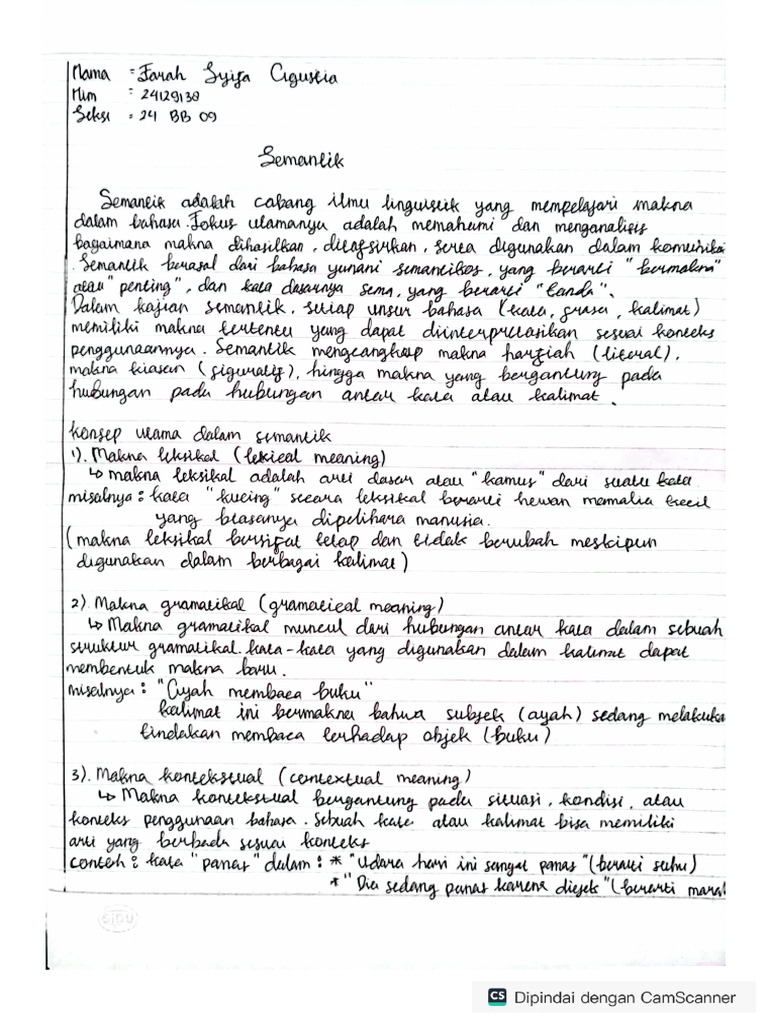 Nama : Farah Syifa Agustia
Nim : 24129138
Seksi : 24 BB 09
Semantik
Semantik adalah cabang ilmu linguistik yang mempelajari makna
dalam bahasa. Fokus utamanya adalah memahami dan menganalisis
bagaimana makna dihasilkan, ditafsirkan, serta digunakan dalam komunika
. Semantik berasal dari bahasa yunani semantikos, yang berarti "bermakna"
atau "penting", dan kata dasarnya sema, yang berarti "tanda".
Dalam kajian semantik, setiap unsur bahasa (kata, frasa, kalimat)
memiliki makna tertentu yang dapat diinterpretasikan sesuai konteks
penggunaannya. Semantik mencangkup makna harfiah (literal),
makna kiasan (figuratif), hingga makna yang bergantung pada
hubungan pada hubungan antar kata atau kalimat.
Konsep utama dalam semantik
1). Makna leksikal (lexical meaning)
↳ makna leksikal adalah arti dasar atau "kamus" dari suatu kata
misalnya : kata "kucing" secara leksikal berarti hewan mamalia kecil
yang biasanya dipelihara manusia.
(makna leksikal bersifat tetap dan tidak berubah meskipun
digunakan dalam berbagai kalimat)
2). Makna gramatikal (gramatical meaning)
↳ Makna gramatikal muncul dari hubungan antar kata dalam sebuah
struktur gramatikal. kata-kata yang digunakan dalam kalimat dapat
membentuk makna baru.
misalnya : "Ayah membaca buku"
kalimat ini bermakna bahwa subjek (ayah) sedang melakuka
tindakan membaca terhadap objek (buku)
3). Makna kontekstual (contextual meaning)
↳ Makna kontekstual bergantung pada situasi, kondisi, atau
konteks penggunaan bahasa. Sebuah kata atau kalimat bisa memiliki
arti yang berbeda sesuai konteks
contoh : kata "panas" dalam : * "Udara hari ini sangat panas" (berarti suhu)
* "Dia sedang panas karena diejek" (berarti marah
SIDU
CS Dipindai dengan CamScanner